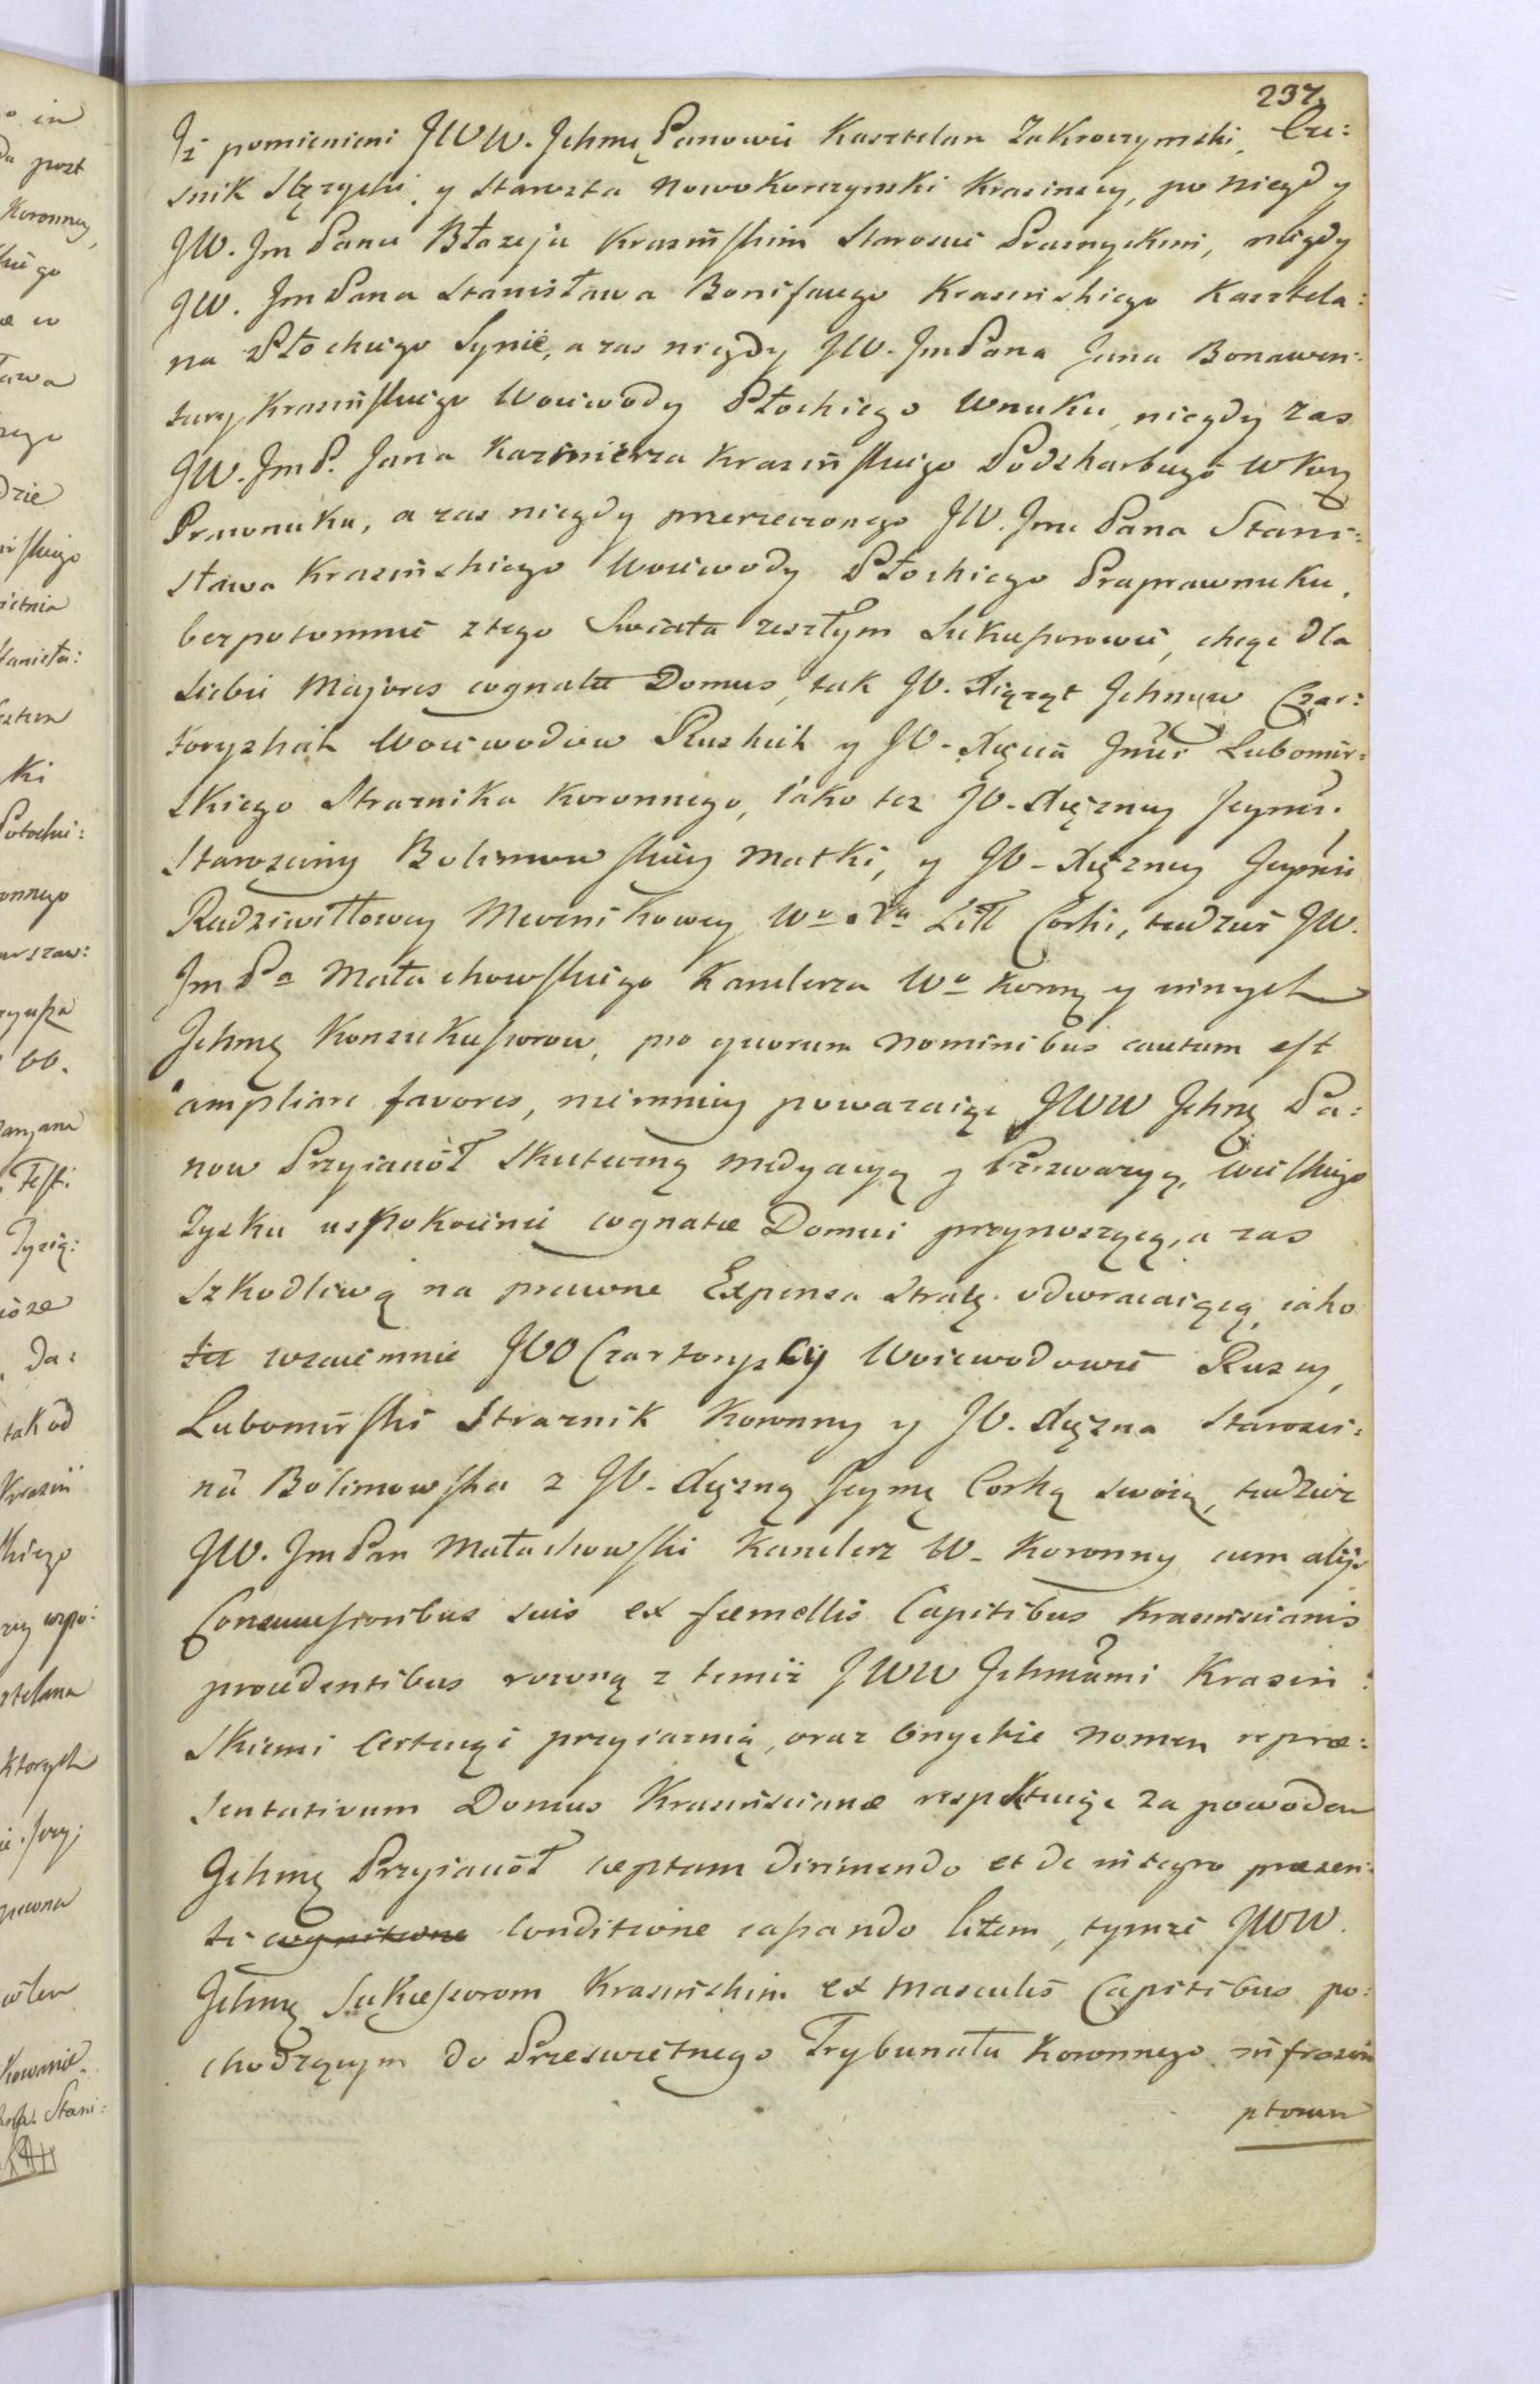 237.
Iż pomienieni JWW. Ichmę Panowie Kasztelan Zakroczymski, Cze:
snik Stężycki, y Starosta Nowokorczynski Krasinscy, po niegdy
JW. Jm Panu Błażeju Krasińskim Starosie Prasnyskim, niegdy
JW. Jm Pana Stanisława Bonifacego Krasinskiego Kasztela:
na Płockiego Synie, a zas niegdy JW. JmPana Jana Bonawen:
tury Krasińskiego Woiewody Płockiego Wnuku, niegdy zas
JW. JmP. Jana Kazimierza Krasińskiego Podskarbiego W Kor
Prawnuku, a zas niegdy przerzeczonego JW. Jmc Pana Stani:
sława Krasińskiego Woiewody Płockiego Praprawnuku,
bezpotomnie z tego Swiata zeszłym Sukcessorowie, chcąc dla
siebie Majores cognatæ Domus, tak JO. Xiążąt Ichmciow Czar:
toryskich Woiewodow Ruskich y JO. Xięcia Jmci Lubomir:
skiego Straznika Koronnego, iako tez JO. Xięzney Jeymci
Starosciny Bolimowskiey Matki, y JO. Xięzney Jeymci
Radziwiłłowey Miecznikowey Wo Xa Litt Corki, tudziesz JW.
Jm Pa Małachowskiego Kanclerza Wo Koron y innych
Ichmę Konsukcessorow, pro quorum nominibus cautum est
ampliare favores, niemniey powazaiąc JWW Ichmę Pa:
now Przyiacioł skuteczną medyacyą y Perswazyą, wielkiego
Zysku uspokoienie cognatæ Domui przynoszącą, a zas
szkodliwą na prawne Expensa stratę odwracaiącą, iako
tez wzaiemnie JOO Czartoryscy Woiewodowie Ruscy,
Lubomirski Straznik Koronny y JO. Xięzna Starosci:
na Bolimowska z JO. Xięzną Jeymę Corką swoią, tudziez
JW. JmPan Małachowski Kanclerz W. Koronny cum alijs
Consuccessoribus suis ex fæmellis Capitibus Krasinscianis
procedentibus rowną z temiż JWW Ichmciami Krasin:
skiemi certuiąc przyiaznią, oraz Onychze nomen repræ:
sentativum Domus Krasinscianæ respektuiąc za powodem
Ichmę Przyiacioł cœptam dirimendo et de integro præsen:
ti cognitione Conditione cassando litem, tymże JWW.
Ichmę Sukcessorom Krasinskim ex masculis Capitibus po:
chodzącym do Przeswietnego Trybunału Koronnego infrascri
ptorum